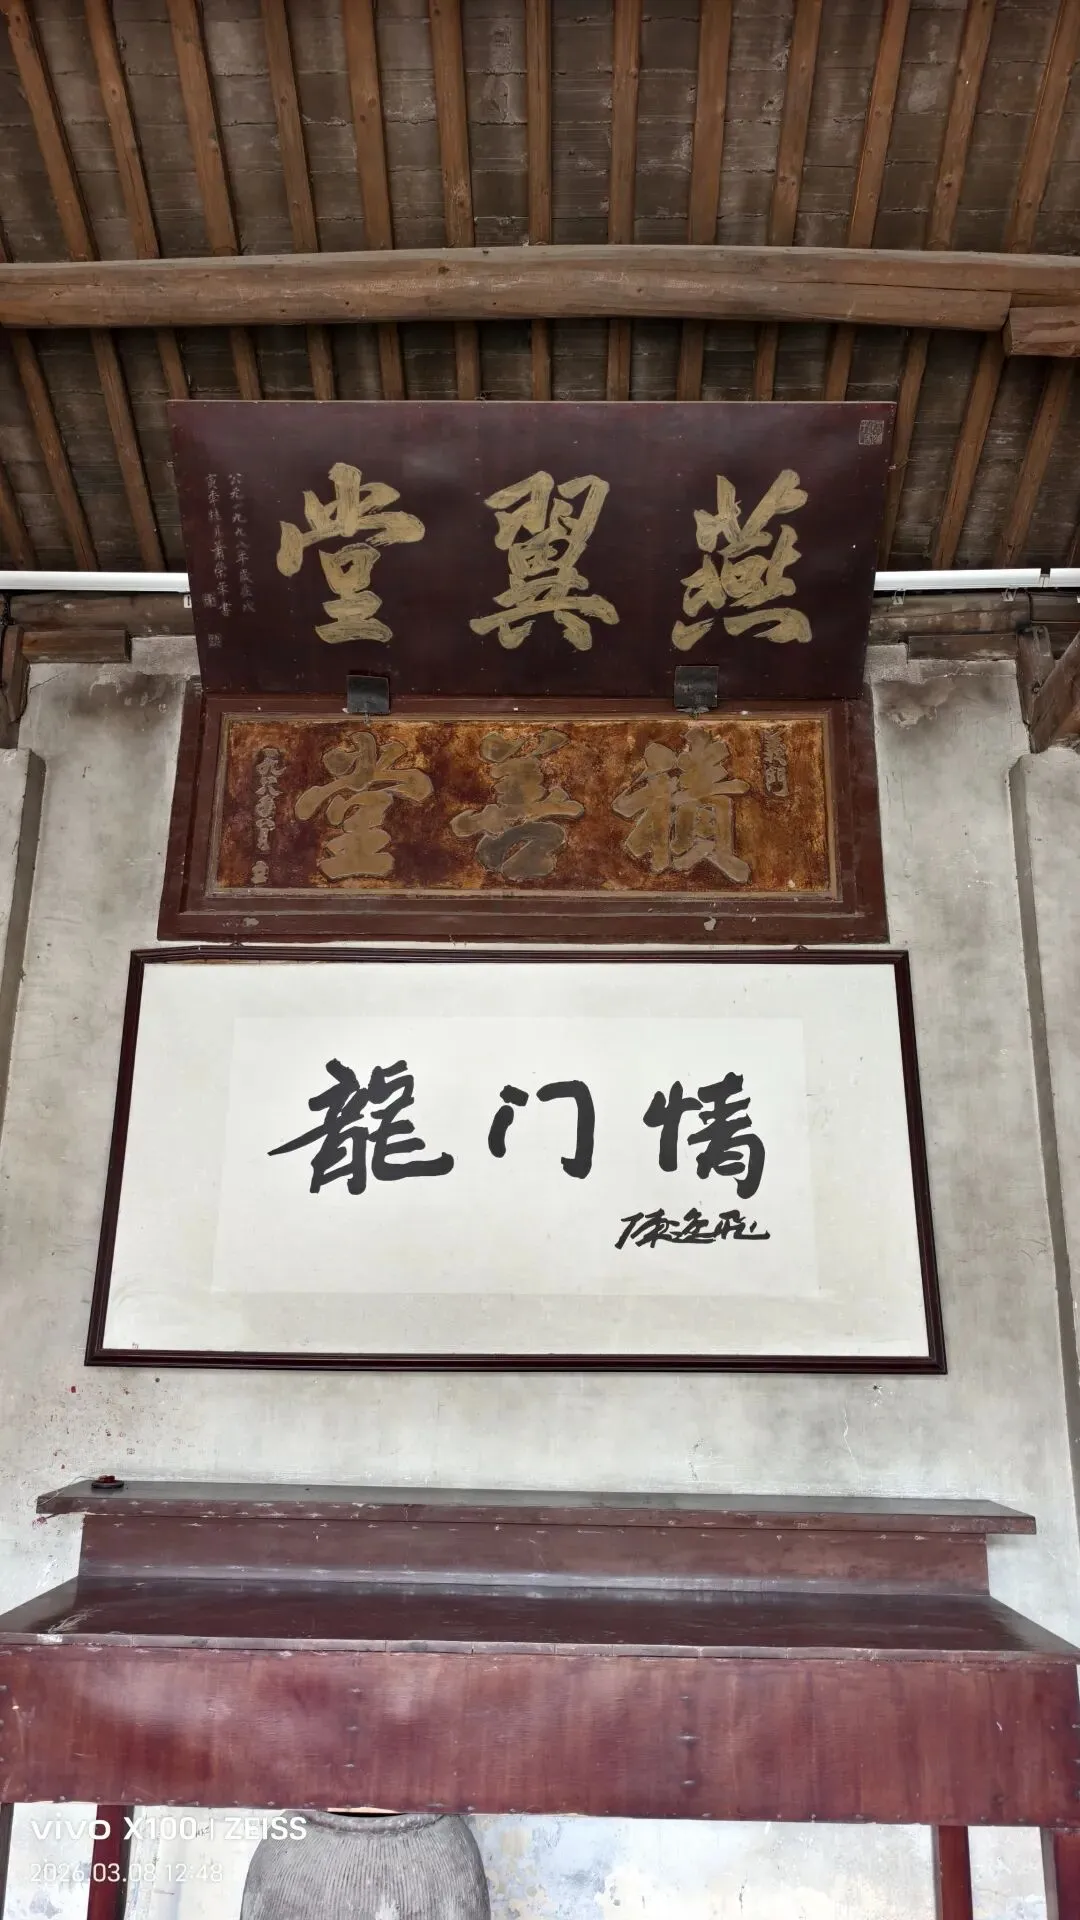 燕翼堂
公元一九九八年歲在戊
寅季桂月蕭榮華書
積善堂
義門
龍门情
陳逸飛
vivo X100 | ZEISS
2026.03.08 12:48